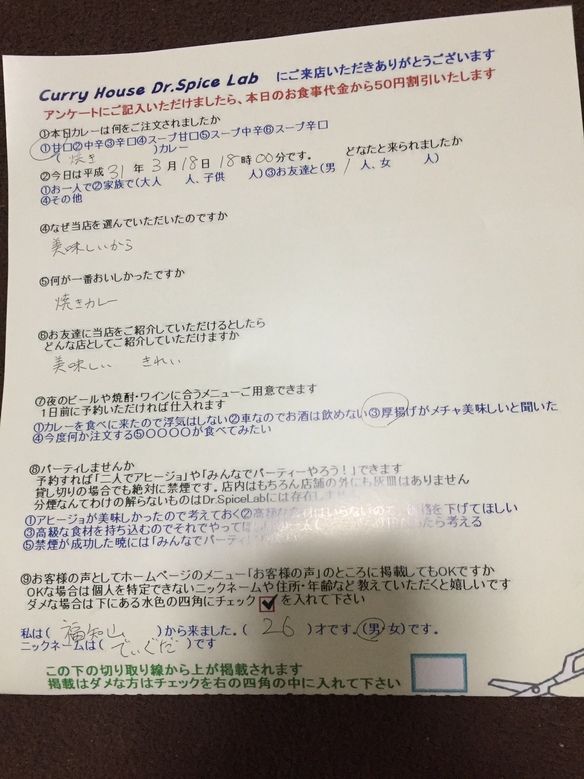 Curry House Dr.Spice Lab にご来店いただきありがとうございます
アンケートにご記入いただけましたら、本日のお食事代金から50円割引いたします
①本日カレーは何をご注文されましたか
①甘口②中辛③辛口④スープ甘口⑤スープ中辛⑥スープ辛口
( 焼き )カレー
②今日は平成 31 年 3 月 18 日 18 時 00 分です。 どなたと来られましたか
①お一人で②家族で(大人 人、子供 人)③お友達と(男 1 人、女 人)
④その他
④なぜ当店を選んでいただいたのですか
美味しいから
⑤何が一番おいしかったですか
焼きカレー
⑥お友達に当店をご紹介していただけるとしたら
どんな店としてご紹介していただけますか
美味しい きれい
⑦夜のビールや焼酎・ワインに合うメニューご用意できます
1日前に予約いただければ仕入れます
①カレーを食べに来たので浮気はしない②車なのでお酒は飲めない③厚揚げがメチャ美味しいと聞いた
④今度何か注文する⑤〇〇〇〇が食べてみたい
⑧パーティしませんか
予約すれば「二人でアヒージョ」や「みんなでパーティーやろう!」できます
貸し切りの場合でも絶対に禁煙です。店内はもちろん店舗の外にも灰皿はありません
分煙なんてわけの解らないものはDr.SpiceLabには存在しません
①アヒージョが美味しかったので考えておく②高級な食材はいらないので、価格を下げてほしい
③高級な食材を持ち込むのでそれでやってほしい だったら考える
⑤禁煙が成功した暁には「みんなでパーティ
⑨お客様の声としてホームページのメニュー「お客様の声」のところに掲載してもOKですか
OKな場合は個人を特定できないニックネームや住所・年齢など教えていただくと嬉しいです
ダメな場合は下にある水色の四角にチェック を入れて下さい
私は( 福知山 )から来ました。( 26 )才です。(男・女)です。
ニックネームは( でぃぐだ )です
この下の切り取り線から上が掲載されます
掲載はダメな方はチェックを右の四角の中に入れて下さい